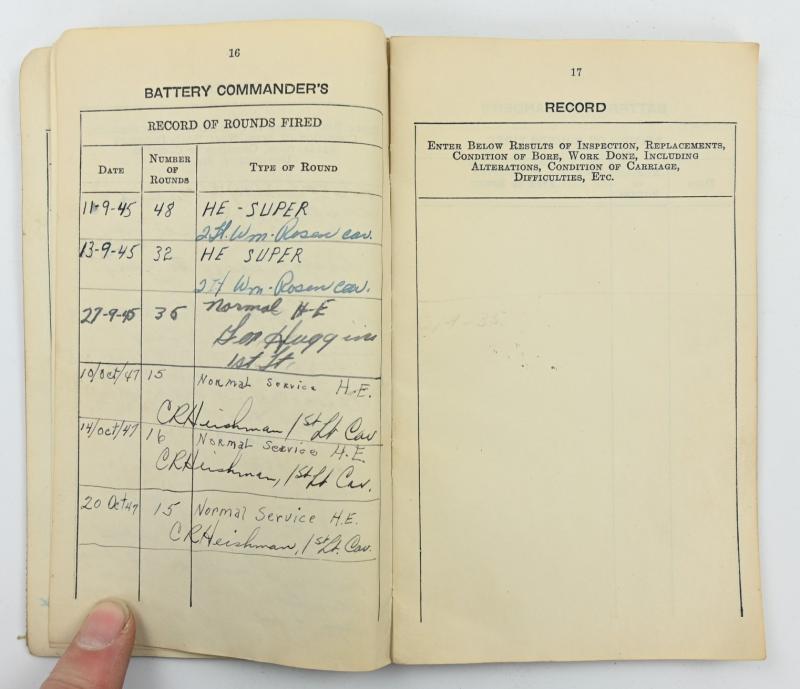 16
BATTERY COMMANDER'S
RECORD OF ROUNDS FIRED
DATE NUMBER OF ROUNDS TYPE OF ROUND
11-9-45 48 HE - SUPER
2 Lt. Wm. Rosen cav.
13-9-45 32 HE SUPER
2 Lt Wm. Rosen cav.
27-9-45 36 Normal H-E
Huggins
1st Lt.
10/Oct/47 15 Normal Service H.E.
CRHeishman 1st Lt Cav
14/Oct/47 16 Normal Service H.E.
CRHeishman, 1st Lt Cav.
20 Oct 47 15 Normal Service H.E.
CRHeishman, 1st Lt. Cav.
17
RECORD
ENTER BELOW RESULTS OF INSPECTION, REPLACEMENTS,
CONDITION OF BORE, WORK DONE, INCLUDING
ALTERATIONS, CONDITION OF CARRIAGE,
DIFFICULTIES, ETC.